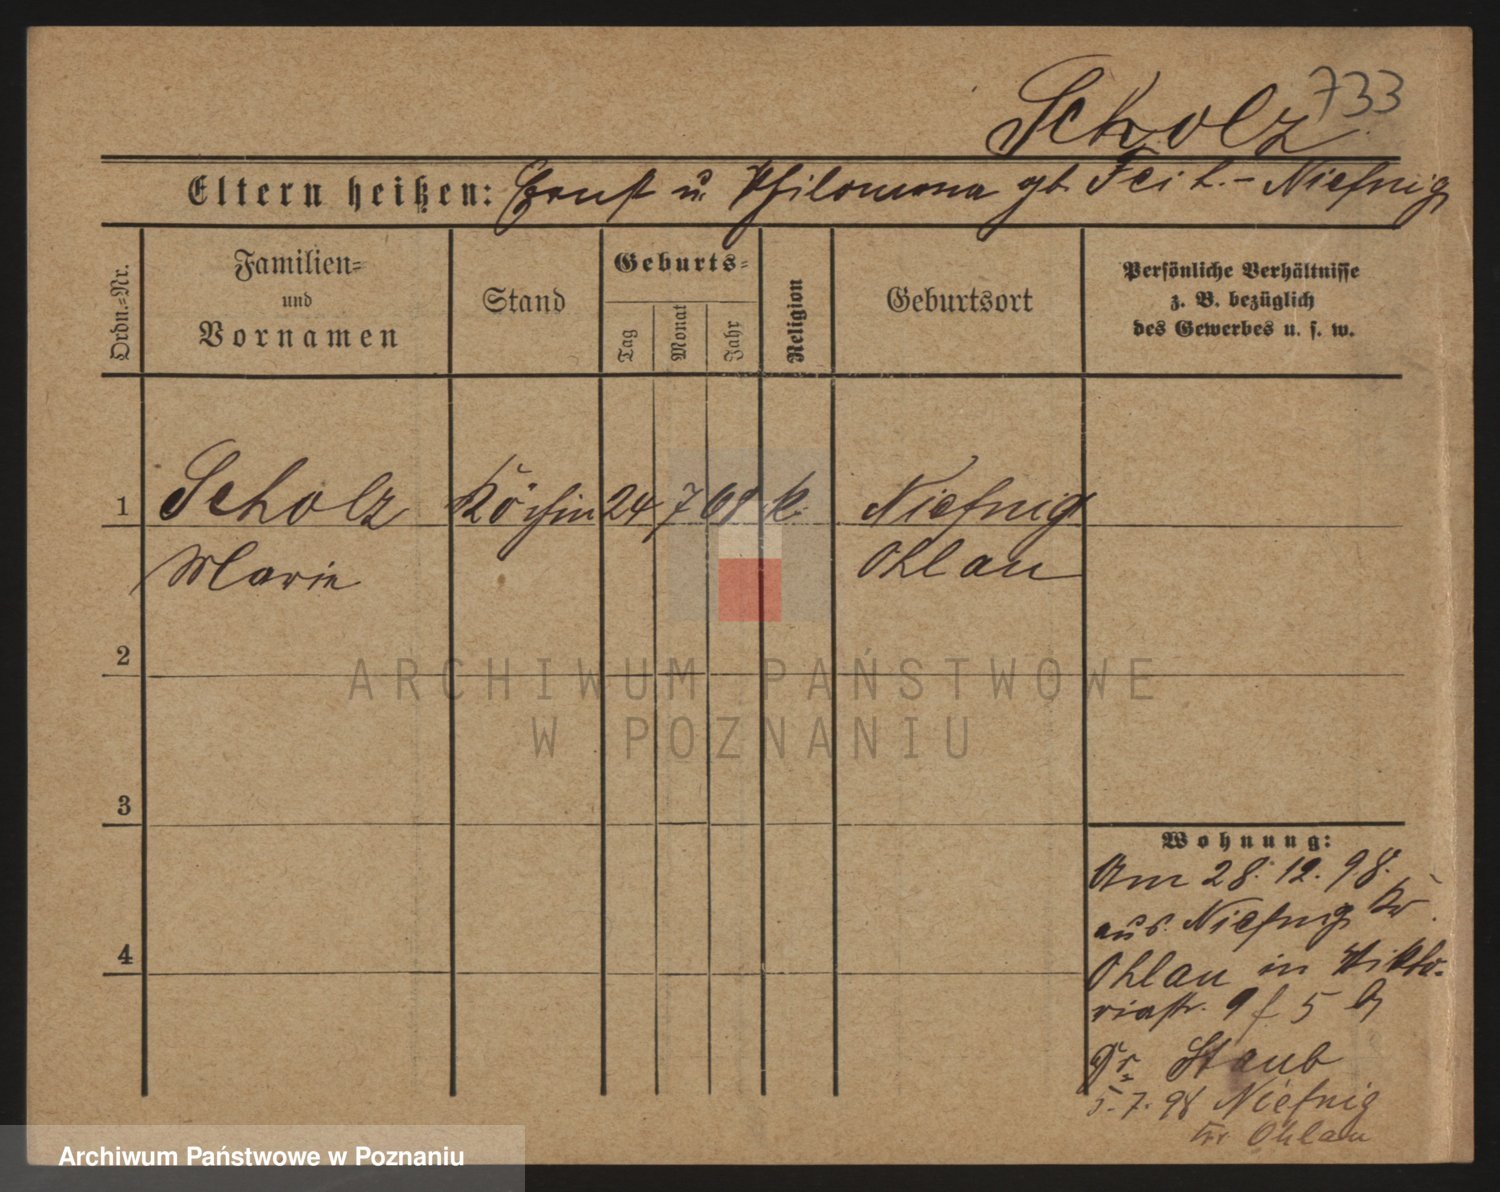 Scholz 733
Eltern heißen: Ernst u. Philomena gb. Feit. - Niefnig
Ordn.-Nr.
Familien-
und
Vornamen
Stand
Geburts-
Tag
Monat
Jahr
Religion
Geburtsort
Persönliche Verhältnisse
z. B. bezüglich
des Gewerbes u. s. w.
1 Scholz Köchin 24 7 61 k. Niefnig
Marie Ohlau
2
ARCHIWUM PAŃSTWOWE
W POZNANIU
3
4
Wohnung:
Am 28. 12. 98.
aus Niefnig Kr.
Ohlau in Vikto-
riastr. 9 f. 5 b
Dr. Staub
5. 7. 98 Niefnig
Kr. Ohlau
Archiwum Państwowe w Poznaniu